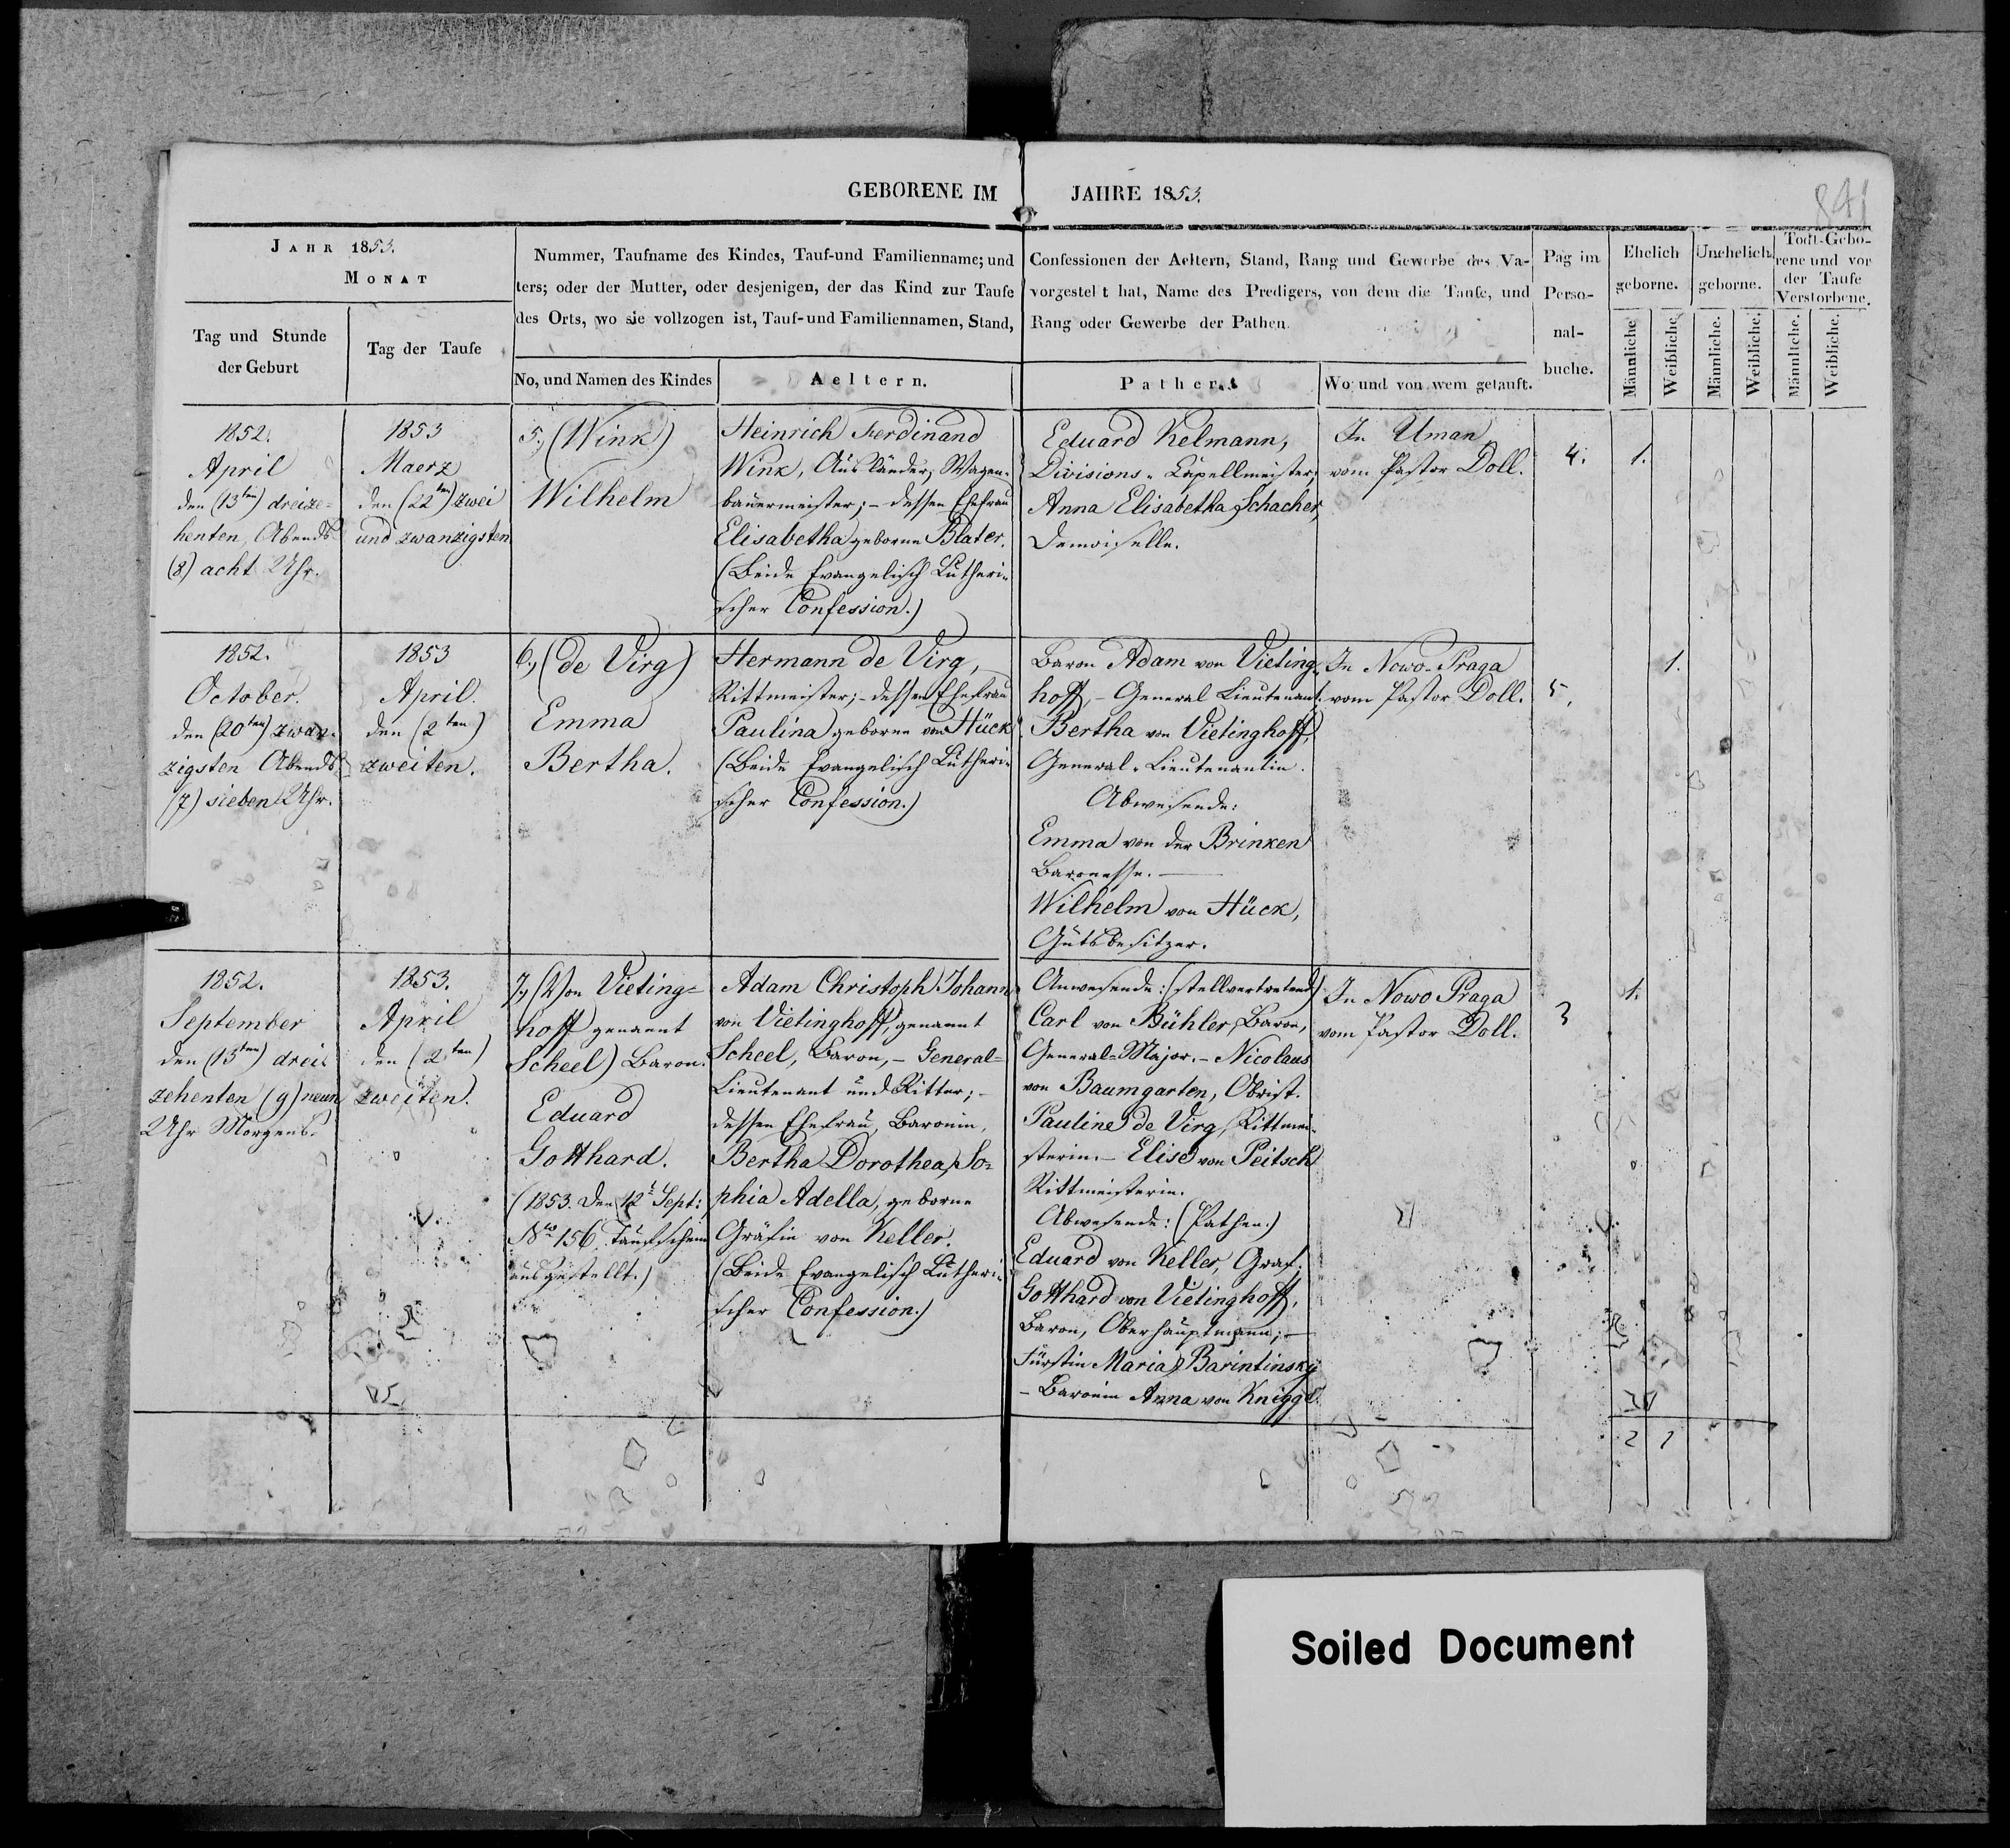 GEBORENE IM JAHRE 1853.
841
JAHR 1853.
MONAT
Tag und Stunde
der Geburt
Tag der Taufe
Nummer, Taufname des Kindes, Tauf-und Familienname; und
ters; oder der Mutter, oder desjenigen, der das Kind zur Taufe
des Orts, wo sie vollzogen ist, Tauf-und Familiennamen, Stand,
No, und Namen des Kindes
Aeltern.
Confessionen der Aeltern, Stand, Rang und Gewerbe des Va-
vorgestellt hat, Name des Predigers, von dem die Taufe, und
Rang oder Gewerbe der Pathen.
Pathen.
Wo und von wem getauft.
Pag im
Perso-
nal-
buche.
Ehelich
geborne.
Unehelich
geborne.
Todt-Gebo-
rene und vor
der Taufe
Verstorbene.
Männliche
Weibliche.
Männliche.
Weibliche.
Männliche.
Weibliche.
1852.
April
den (13ten) dreize-
henten, Abends
(8) acht Uhr.
1853
Maerz
den (22ten) zwei
und zwanzigsten
5., (Wink)
Wilhelm
Heinrich Ferdinand
Wink, Ausländer, Wagen-
bauermeister; - dessen Ehefrau
Elisabetha geborne Blater.
(Beide Evangelisch Lutheri-
scher Confession.)
Eduard Kelmann,
Divisions-Capellmeister;
Anna Elisabetha Schacher,
Demoiselle.
In Uman
vom Pastor Doll.
4.
1.
1852.
October.
den (20ten) zwan-
zigsten Abends
(7) sieben Uhr.
1853
April.
den (2ten)
zweiten.
6., (de Virg)
Emma
Bertha.
Hermann de Virg, -
Rittmeister; - dessen Ehefrau
Paulina geborne von Hück
(Beide Evangelisch Lutheri-
scher Confession.)
Baron Adam von Vieting-
hoff, - General Lieutenant.
Bertha von Vietinghoff,
General-Lieutenantin.
Abwesende:
Emma von der Brinken
Baronesse. -
Wilhelm von Hück,
Gutsbesitzer.
In Nowo-Praga
vom Pastor Doll.
5.
1.
1852.
September
den (13ten) drei-
zehenten (9) neun
Uhr Morgens.
1853.
April
den (2ten)
zweiten.
7., (Von Vieting-
hoff genannt
Scheel) Baron.
Eduard
Gotthard.
(1853. Den 12t Sept:
No 156. Taufschein
ausgestellt.)
Adam Christoph Johann
von Vietinghoff, genannt
Scheel, Baron, - General-
Lieutenant und Ritter; -
dessen Ehefrau, Baronin,
Bertha Dorothea So-
phia Adella, geborne
Gräfin von Keller.
(Beide Evangelisch Lutheri-
scher Confession.)
Anwesende: (stellvertretend)
Carl von Bühler, Baron,
General-Major. - Nicolaus
von Baumgarten, Obrist.
Pauline de Virg, Rittmei-
sterin. - Elise von Peitsch
Rittmeisterin.
Abwesende: (Pathen.)
Eduard von Keller, Graf;
Gotthard von Vietinghoff,
Baron, Oberhauptmann; -
Fürstin Maria Barintinsky
- Baronin Anna von Knigge.
In Nowo Praga
vom Pastor Doll.
3
1.
2 1
Soiled Document